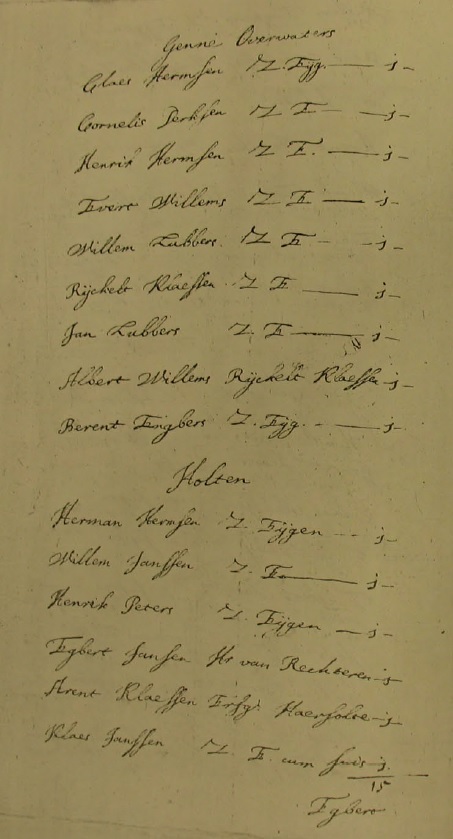 Genne Overwaters
Claes Hermsen Z. Eyg. — j -
Cornelis Derksen Z E — j -
Henrik Hermsen Z E. — j -
Evert Willems Z E — j -
Willem Lubbers Z E - - j -
Rijckelt Klaessen Z E — j -
Jan Lubbers Z. E — j -
Albert Willems Rijckelt Klaessen j -
Berent Engbers Z. Eijg. - — j -
Holten
Herman Hermsen Z Eijgen - - j -
Willem Janssen Z. E — j -
Henrik Peters Z. Eijgen — j -
Egbert Jansen Hr van Rechteren - j
Arent Klaessen Erfg. Haersolte - j
Klaes Janssen Z. E cum suis j.
15
Egbert